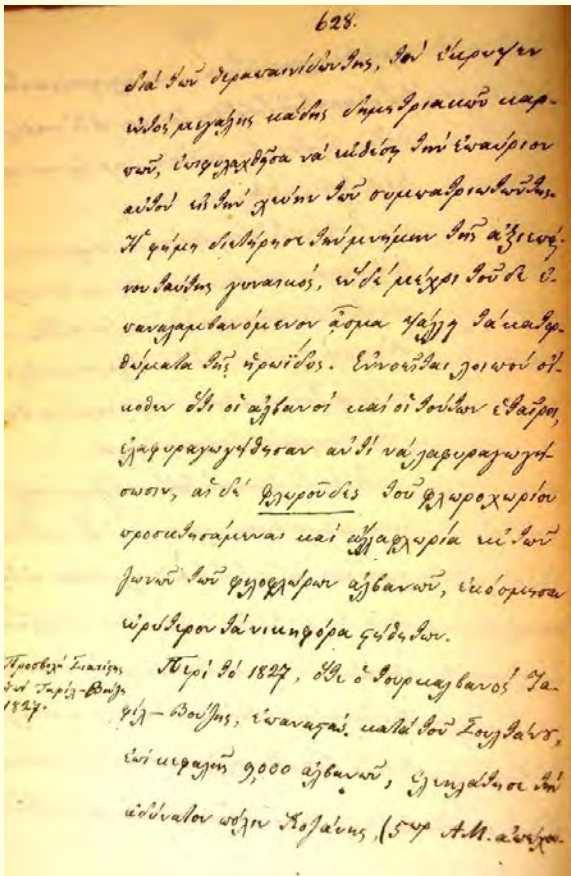 628.
διά τῶν θεραπαινίδων της, τόν ἔκρυψεν
ἐντός μεγάλης κάδης δημητριακῶν καρ-
πῶν, ἐπιφυλαχθῆσα νά ἐκθέσῃ τήν ἐπαύριον
αὐτόν εἰς τήν χλεύην τῶν συμπατριωτῶν της.
Ἡ φήμη διετήρησε τήν μνήμην τῆς ἀξιεπαί-
νου ταύτης γυναικός, ἐν δέ μέχρι τοῦδε ἐ-
παναλαμβανόμενον ᾆσμα ψάλλῃ τά κατορ-
θώματα τῆς ἡρωΐδος. Ἐννοεῖται λοιπόν οἴ-
κοθεν ὅτι οἱ ἀλβανοί καί οἱ τούτων ἑταῖροι,
ἐλαφυραγωγήθησαν ἀντί νά λαφυραγωγή-
σωσιν, αἱ δέ φλωροῦδες τοῦ φλωροχωρίου
προσκτησάμεναι καί ἄλλα φλωρία ἐκ τῶν
ζωνῶν τῶν φιλοφλώρων ἀλβανῶν, ἐκόσμησαν
εὐρύτερον τά νικηφόρα στήθη των.
Προσβολή Σιατίστης
ὑπό Ταφίλ-Βούζη
1827.
Περί τό 1827, ὅτε ὁ τουρκαλβανός Τα-
φίλ-Βούζης, ἐπαναστάς κατά τοῦ Σουλτάνου,
ἐπί κεφαλῆς 9,000 ἀλβανῶν, ἐλεηλάτησε τήν
ἀδύνατον πόλιν Κοζάνης, (5ωρ Α.Μ. ἀπέχου-